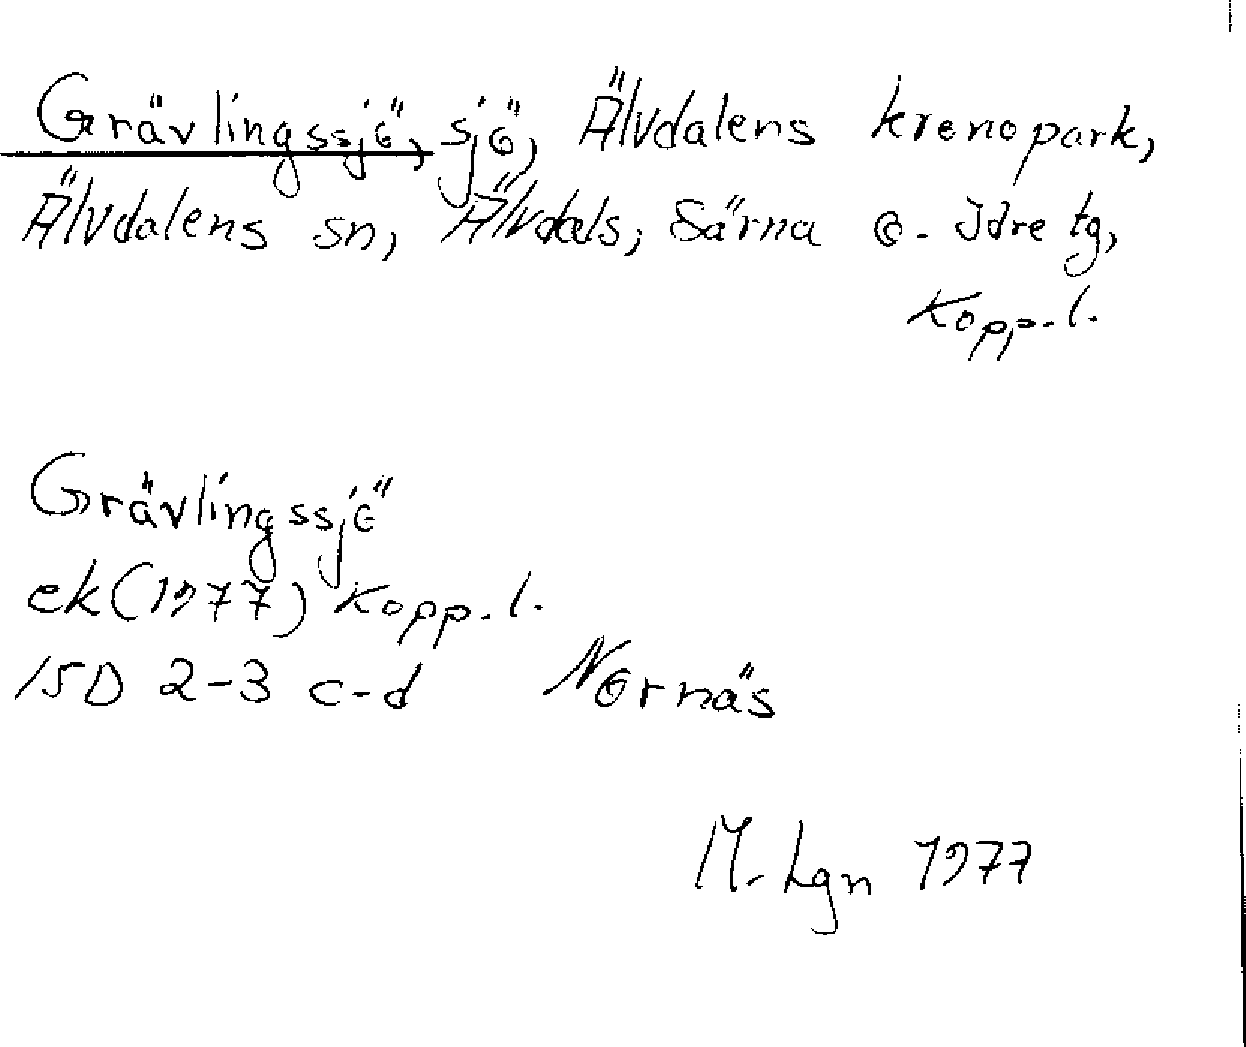 Grävlingssjö, sjö, Älvdalens kronopark,
Älvdalens sn, Älvdals, Särna o. Idre tg,
Kopp. l.
Grävlingssjö
ek (1977) Kopp. l.
15D 2-3 c-d Nornäs
M. Lgn 1977